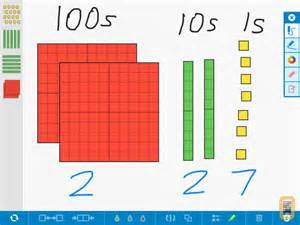 100s 10s 1s
2 2 7